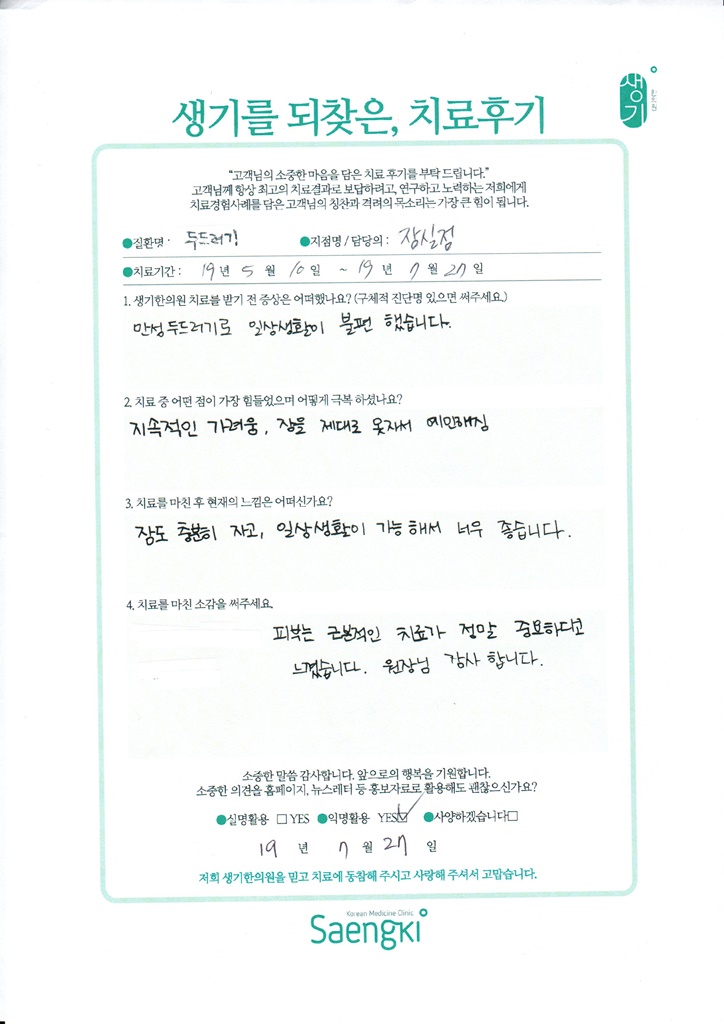 생기
한의원
생기를 되찾은, 치료후기
"고객님의 소중한 마음을 담은 치료 후기를 부탁 드립니다."
고객님께 항상 최고의 치료결과로 보답하려고, 연구하고 노력하는 저희에게
치료경험사례를 담은 고객님의 칭찬과 격려의 목소리는 가장 큰 힘이 됩니다.
●질환명 : 두드러기 ●지점명 / 담당의 : 잠실점
●치료기간 : 19년 5월 10일 ~ 19년 7월 27일
1. 생기한의원 치료를 받기 전 증상은 어떠했나요? (구체적 진단명 있으면 써주세요.)
만성두드러기로 일상생활이 불편 했습니다.
2. 치료 중 어떤 점이 가장 힘들었으며 어떻게 극복 하셨나요?
지속적인 가려움, 잠을 제대로 못자서 예민해짐
3. 치료를 마친 후 현재의 느낌은 어떠신가요?
잠도 충분히 자고, 일상생활이 가능해서 너무 좋습니다.
4. 치료를 마친 소감을 써주세요.
피부는 근본적인 치료가 정말 중요하다고
느꼈습니다. 원장님 감사 합니다.
소중한 말씀 감사합니다. 앞으로의 행복을 기원합니다.
소중한 의견을 홈페이지, 뉴스레터 등 홍보자료로 활용해도 괜찮으신가요?
●실명활용 □YES ●익명활용 YES☑ ●사양하겠습니다□
19 년 7 월 27 일
저희 생기한의원을 믿고 치료에 동참해 주시고 사랑해 주셔서 고맙습니다.
Korean Medicine Clinic
Saengki